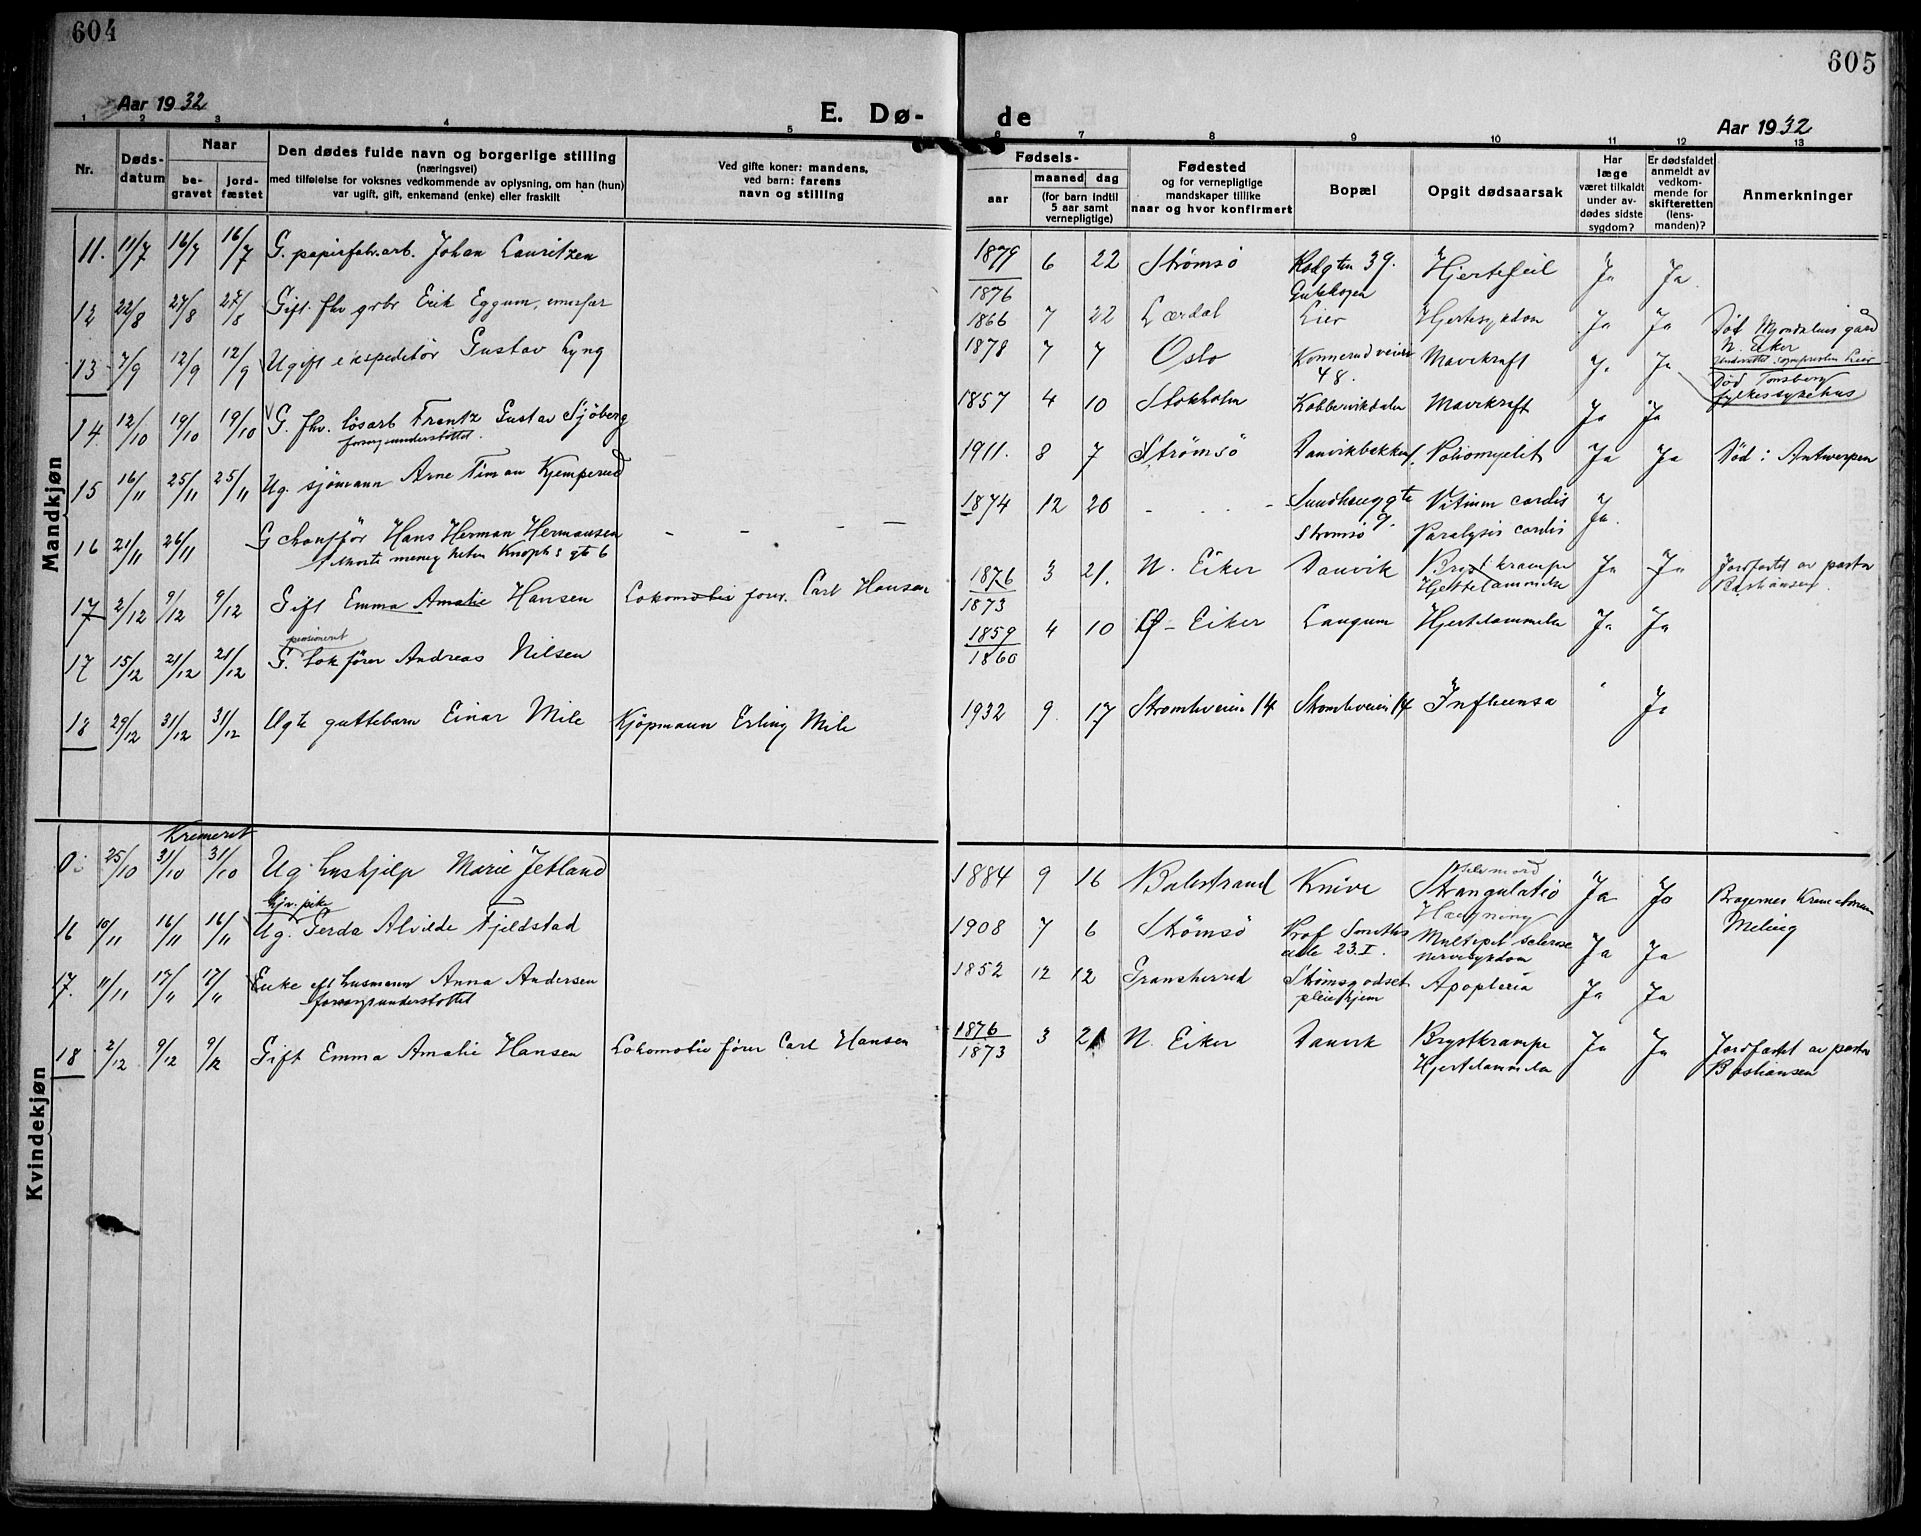 604
Aar 1932
E. Dø-
1 2 3 4 5
Nr.
Døds-
datum
Naar
be-
gravet
jord-
fæstet
Den dødes fulde navn og borgerlige stilling
(næringsvei)
med tilføielse for voksnes vedkommende av oplysning, om han (hun)
var ugift, gift, enkemand (enke) eller fraskilt
Ved gifte koner: mandens,
ved barn: farens
navn og stilling
Mandkjøn
11. 11/7 16/7 16/7 G. papirfabr.arb. Johan Lauritzen
12 22/8 27/8 27/8 Gift. fhv. grbr Erik Eggum,
13 7/9 12/9 12/9 Ugift ekspeditør Gustav Lyng
14 12/10 19/10 19/10 G. fhv. løsarb Frantz Gustav Sjöberg
forsorgsunderstöttet.
15 16/11 25/11 25/11 Ug. sjömann Arne Timan Kjemperud
16 21/11 26/11 G chauffør Hans Herman Hermansen - - -
17 2/12 9/12 9/12 Gift Emma Amalie Hansen Lokomotiv fører. Carl Hansen
pensioneret
17 15/12 21/12 21/12 G. Lokfører Andreas Nilsen
18 29/12 31/12 31/12 Ugte guttebarn Einar Mile Kjøpmann Erling Mile
Kvindekjøn
Kremert
25/10 31/10 31/10 Ug. hushjelp Marie Jetland
16 10/11 16/11 16/11 Ug. Gerda Alvilde Fjeldstad
17. 11/11 17/11 17/11 Enke eft husmann Anna Andersen
forsorgsunderstöttet
18 2/12 9/12 9/12 Gift Emma Amalie Hansen Lokomotiv fører Carl Hansen
605
de
Aar 1932
6 7 8 9 10 11 12 13
Fødsels-
aar
maaned
dag
(for barn indtil
5 aar samt
vernepligtige)
Fødested
og for vernepligtige
mandskaper tillike
naar og hvor konfirmert
Bopæl
Opgit dødsaarsak
Har
læge
været tilkaldt
under av-
dødes sidste
sygdom?
Er dødsfaldet
anmeldt av
vedkom-
mende for
skifteretten
(lens-
manden)?
Anmerkninger
1879 6 22 Strømsö 39. Hjertefeil Ja Ja
1876
1866 7 22 Lærdal Lier Hjertesykdom Ja Ja Död Mjøndalens gård
N. Eker
1878 7 7 Oslo Konnerudveien Mavekræft Ja Ja
48.
Død Tønsberg
fylkessykehus
1857 4 10 Stokholm Kobbervikdalen Mavekræft Ja Ja
1911. 8 7 Strømsö Danvikbakken Poliomyelit Ja Ja Død i Antwerpen
1874 12 20 - - - Sundhauggte Vitium cordis Ja.
Strømsö 9. Paralysis cordis
1876 3 21. N. Eiker Danvik Brystkrampe Ja Ja Jordfæstet av pastor
1873 Hjertelammelse Bastiansen.
1859 4 10 Ø- Eiker Laugum Hjertelammelse Ja Ja
1860
1932 9. 17 Stromhveien 14 Stromhveien 14 Influensa Ja
Selvmord
1884 9 16 Balestrand Knive Strangulatio Ja Ja Bragernes Krematorium
Hængning Meling
1908 7 6 Strømsö Prof Smiths Multipel sclerose Ja Ja
alle 23.I. Nervesykdom
1852 12 12 Gransherred Strømsgodset Apoplexia Ja Ja
pleiehjem
1876 3 21 N. Eiker Danvik Brystkrampe Ja Ja Jordfæstet av pastor
1873 Hjertelammelse Bastiansen